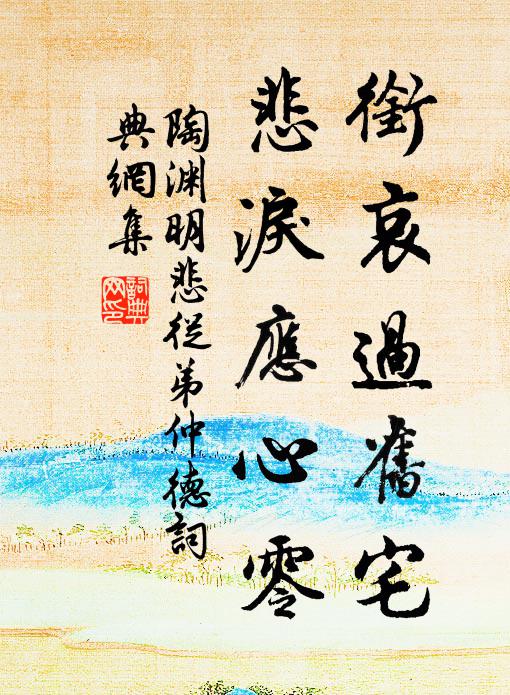 銜哀過舊宅
悲淚應心零
陶渊明悲從弟仲德詞
典網集
詞典
网印